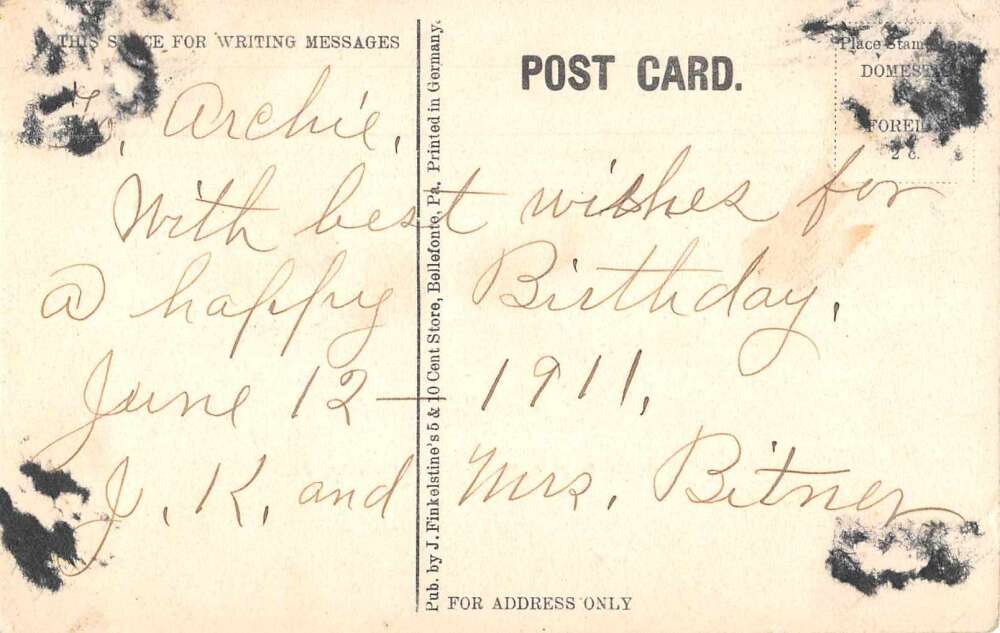 THIS SPACE FOR WRITING MESSAGES
POST CARD.
Place Stamp
DOMESTIC
FOREIGN
2 c.
To, Archie,
With best wishes for
a happy Birthday,
June 12 - 1911,
J. K. and Mrs. Bitner
Pub. by J. Finkelstine's 5 & 10 Cent Store, Bellefonte, Pa. Printed in Germany.
FOR ADDRESS ONLY